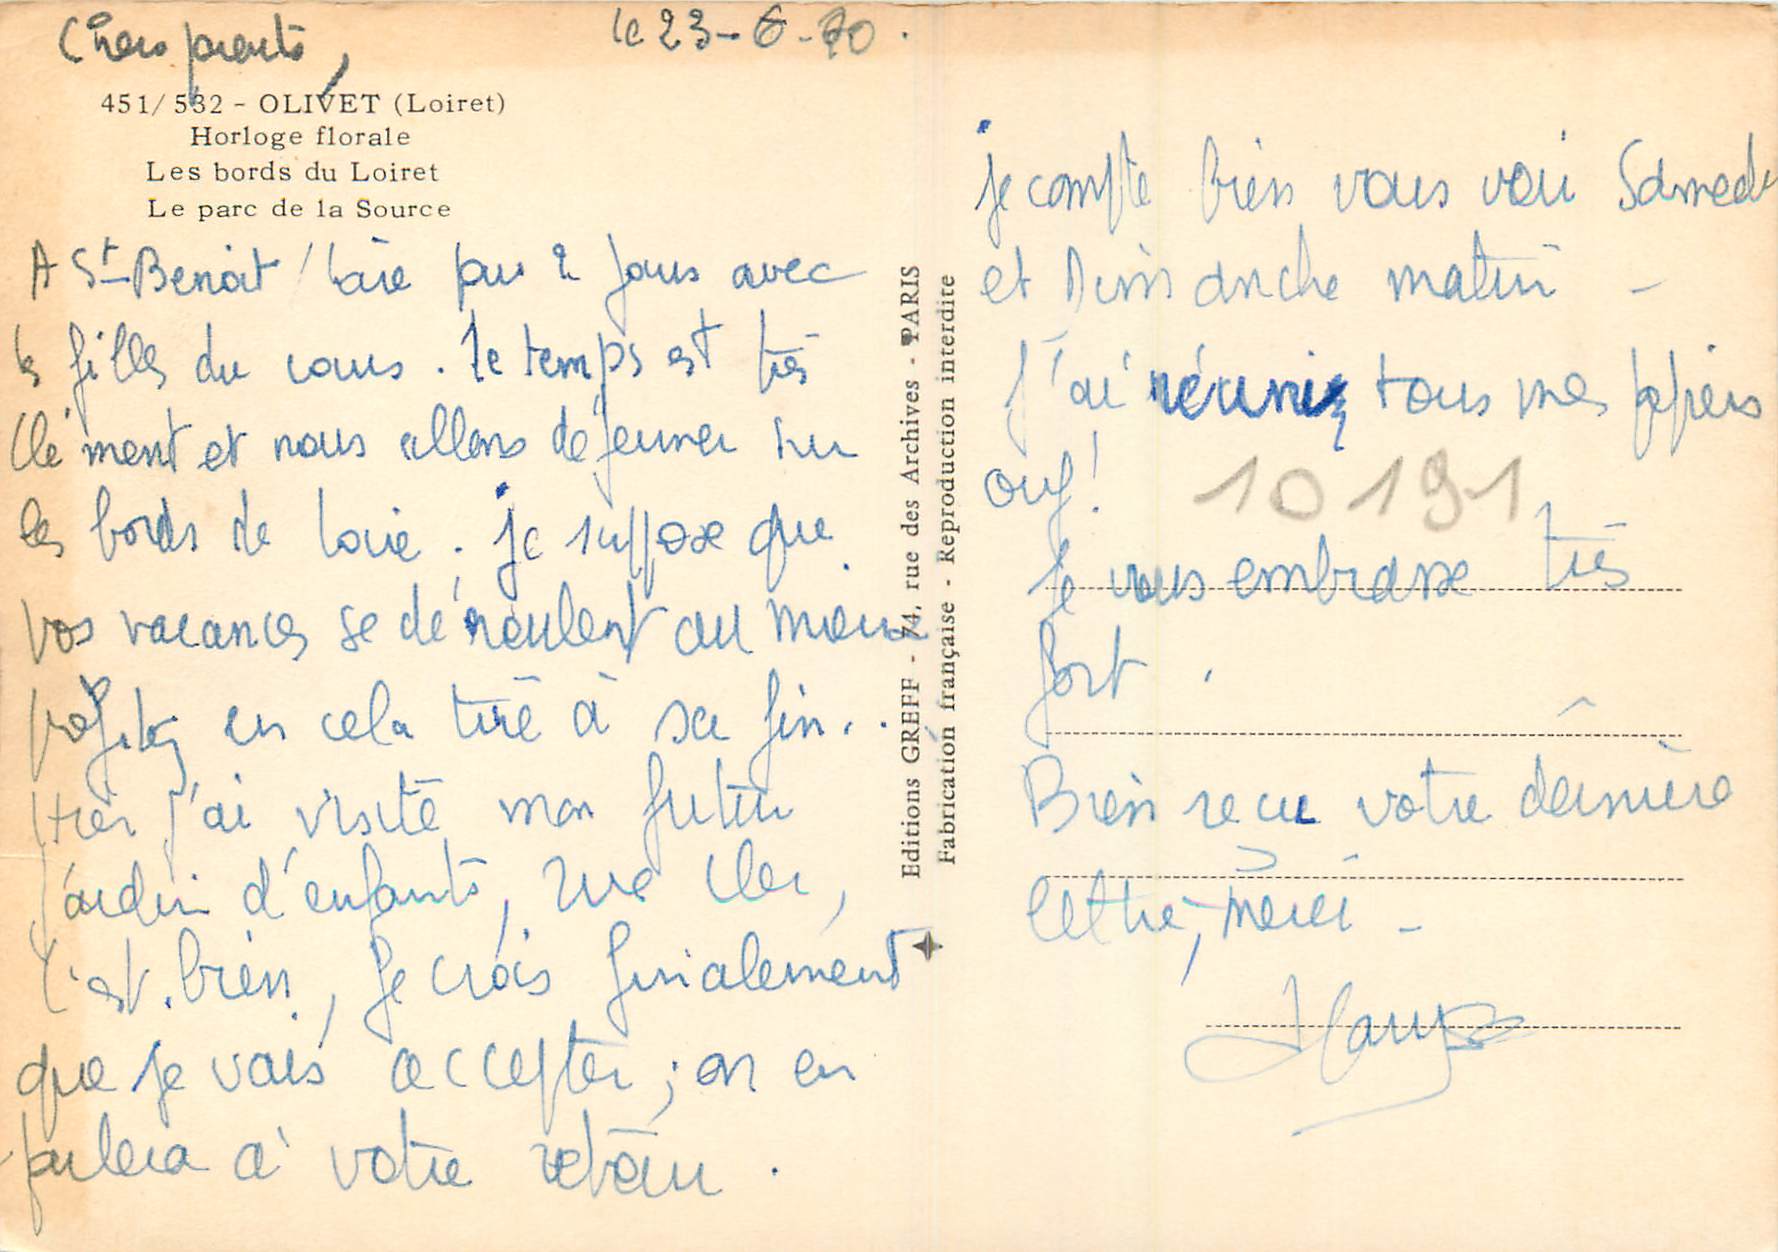 Chers parents,
le 23-6-70.
451/532 - OLIVET (Loiret)
Horloge florale
Les bords du Loiret
Le parc de la Source
A St-Benoit/Loire pour 2 jours avec
les filles du cours. Le temps est très
clément et nous allons déjeuner sur
les bords de Loire. je suppose que
vos vacances se déroulent au mieux
profitez en cela tire à sa fin..
Hier j'ai visité mon futur
jardin d'enfants, rue Cler,
c'est bien, je crois finalement
que je vais accepter ; on en
parlera à votre retour.
Editions GREFF - 74, rue des Archives - PARIS
Fabrication française - Reproduction interdite
je compte bien vous voir Samedi
et Dimanche matin -
J'ai réuni tous mes papiers
ouf!
10191
Je vous embrasse très
fort.
Bien reçu votre dernière
lettre, merci -